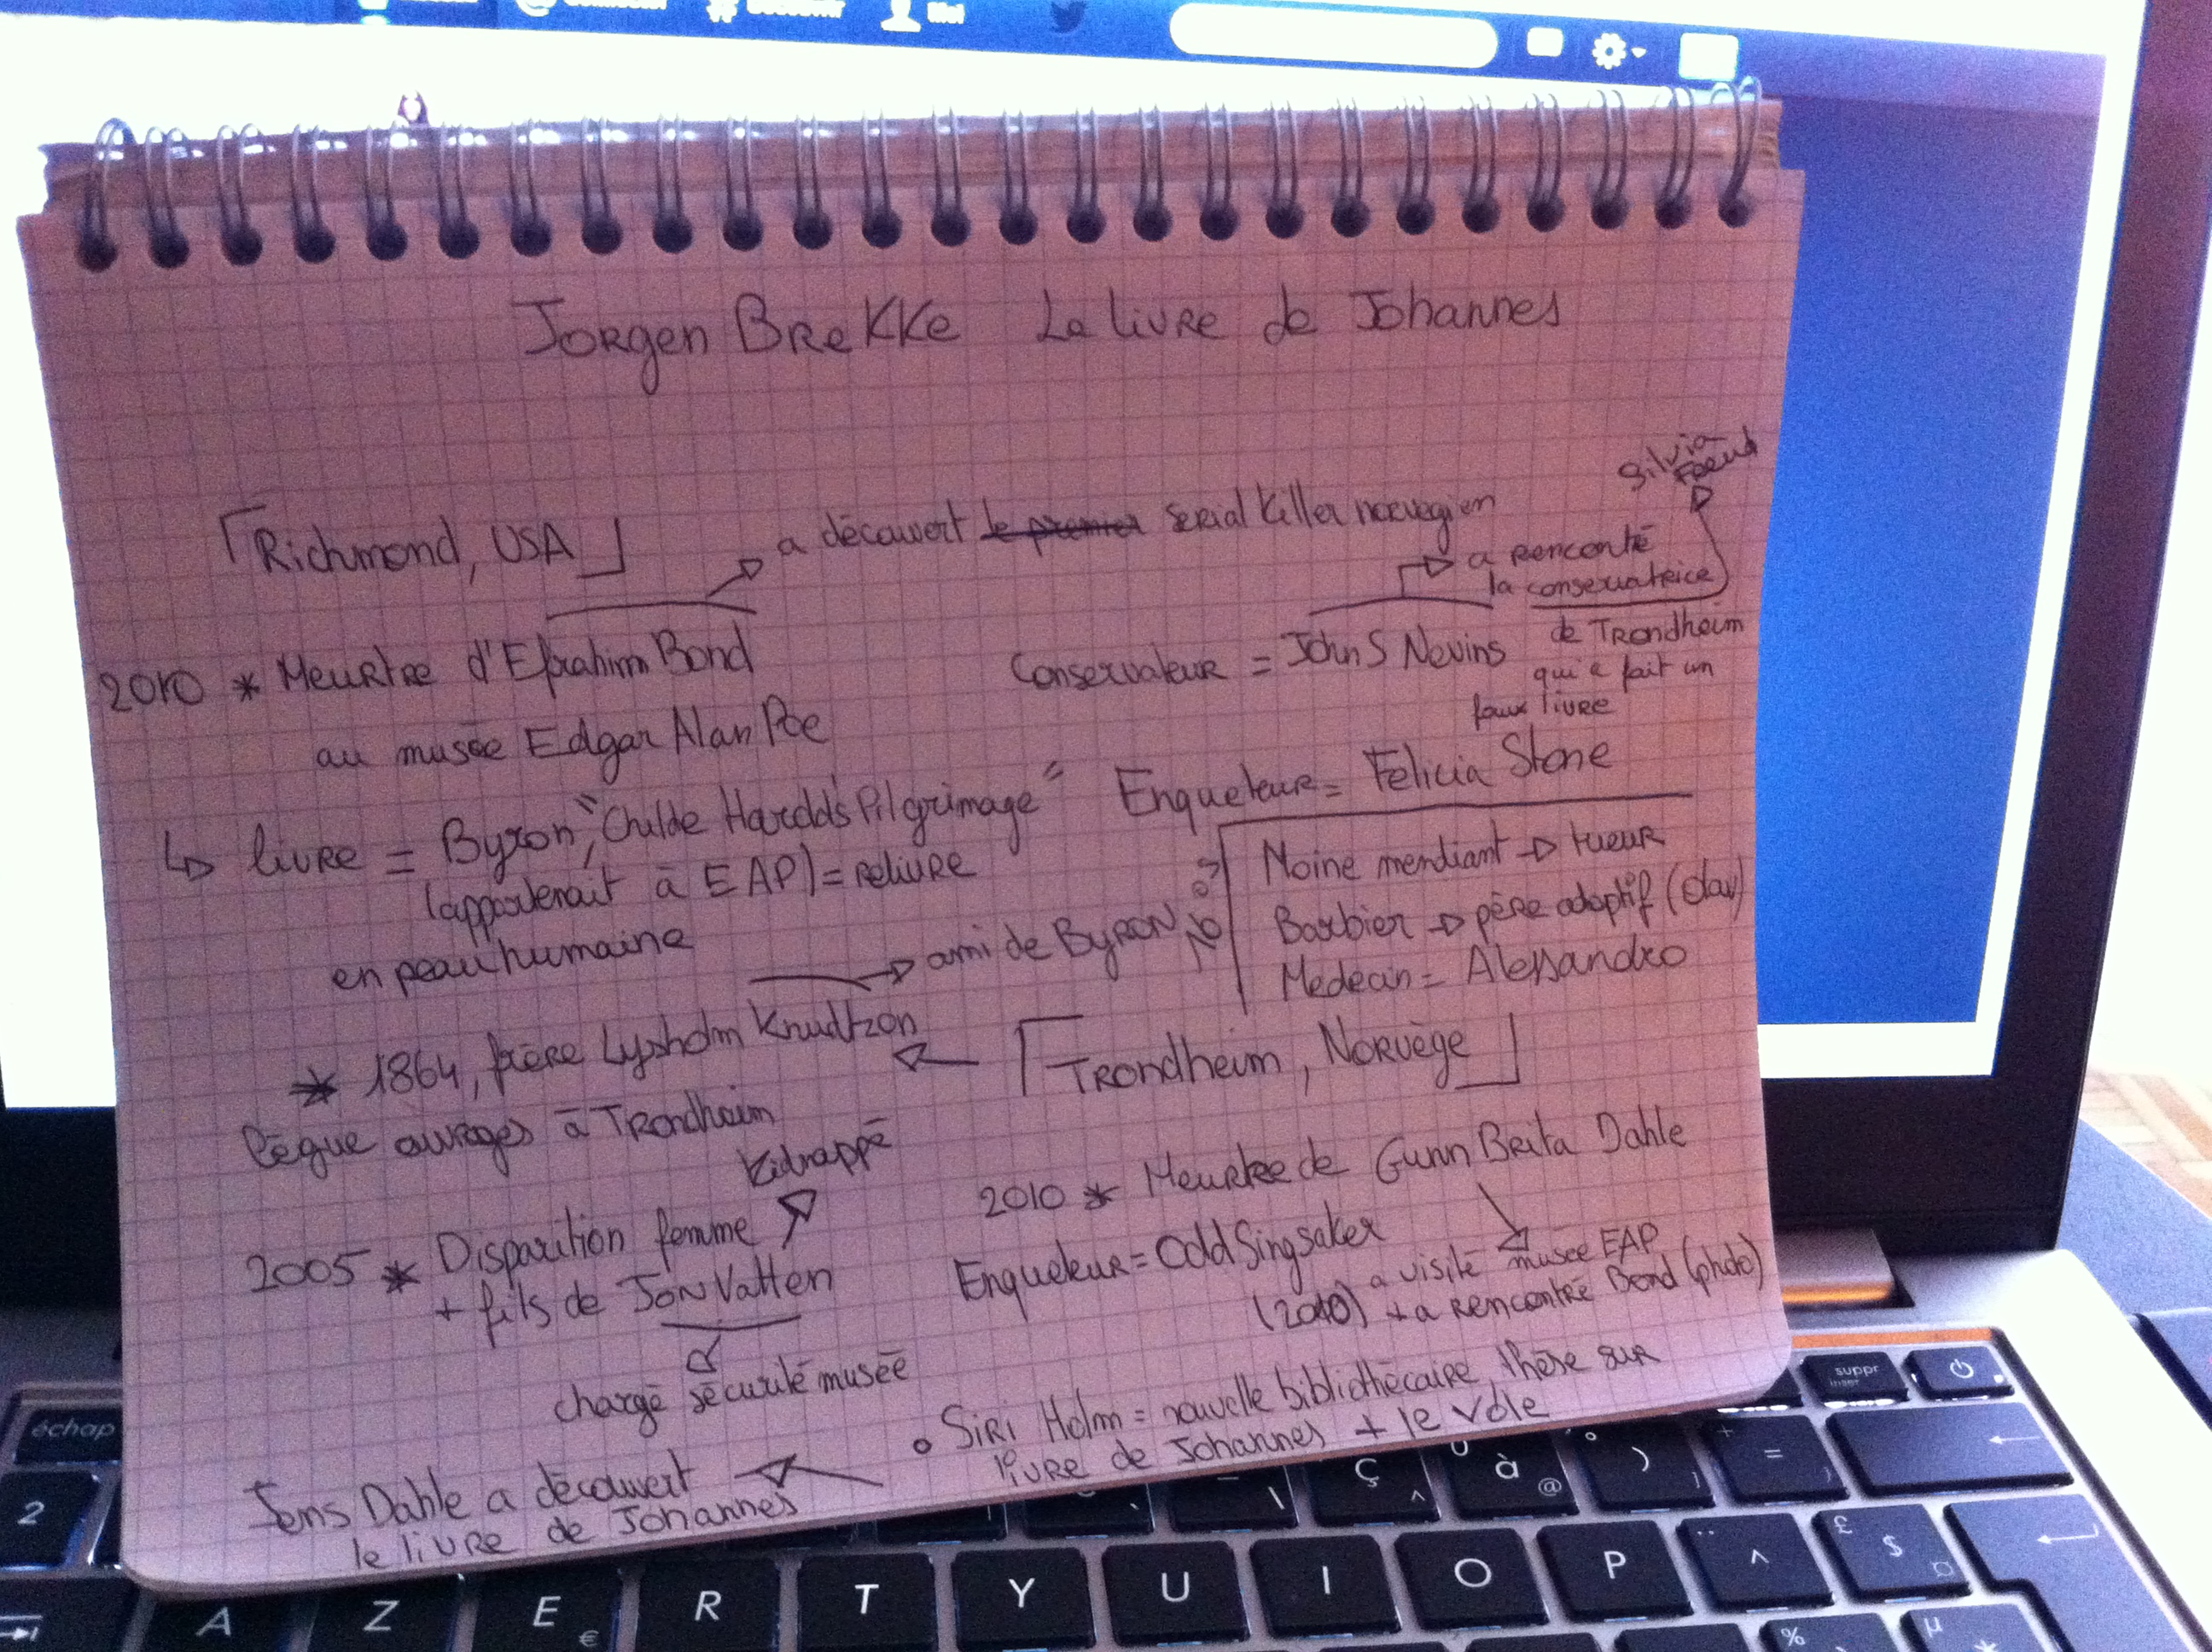 Moi
Jorgen Brekke Le livre de Johannes
Silvia
Freud
Richmond, USA
a découvert le premier serial killer norvegien
a renconté
la conservatrice
de Trondheim
qui a fait un
faux livre
2010 * Meurtre d'Efrahim Bond
au musée Edgar Alan Poe
Conservateur = John S Nevins
Enqueteur = Felicia Stone
↳ livre = Byron, "Childe Harold's Pilgrimage"
(appartenait à EAP) = reliure
en peau humaine
Moine mendiant → tueur
Barbier → père adoptif (Olav)
Medecin = Alessandro
→ ami de Byron
* 1864, frère Lysholm Knudtzon
lègue ouvrages à Trondheim
Trondheim, Norvège
kidnappé
2005 * Disparition femme
+ fils de Jon Vatten
chargé sécurité musée
2010 * Meurtre de Gunn Brita Dahle
Enqueteur = Odd Singsaker
a visité musée EAP
(2010) + a rencontré Bond (photo)
• Siri Holm = nouvelle bibliothécaire, thèse sur
livre de Johannes + le vole
Jens Dahle a découvert
le livre de Johannes
échap
suppr
inser
2
ç ^
à @
° ) ]
+ = }
A Z E € R T Y U I O P
¨ ^
£ $ ¤
%
µ *